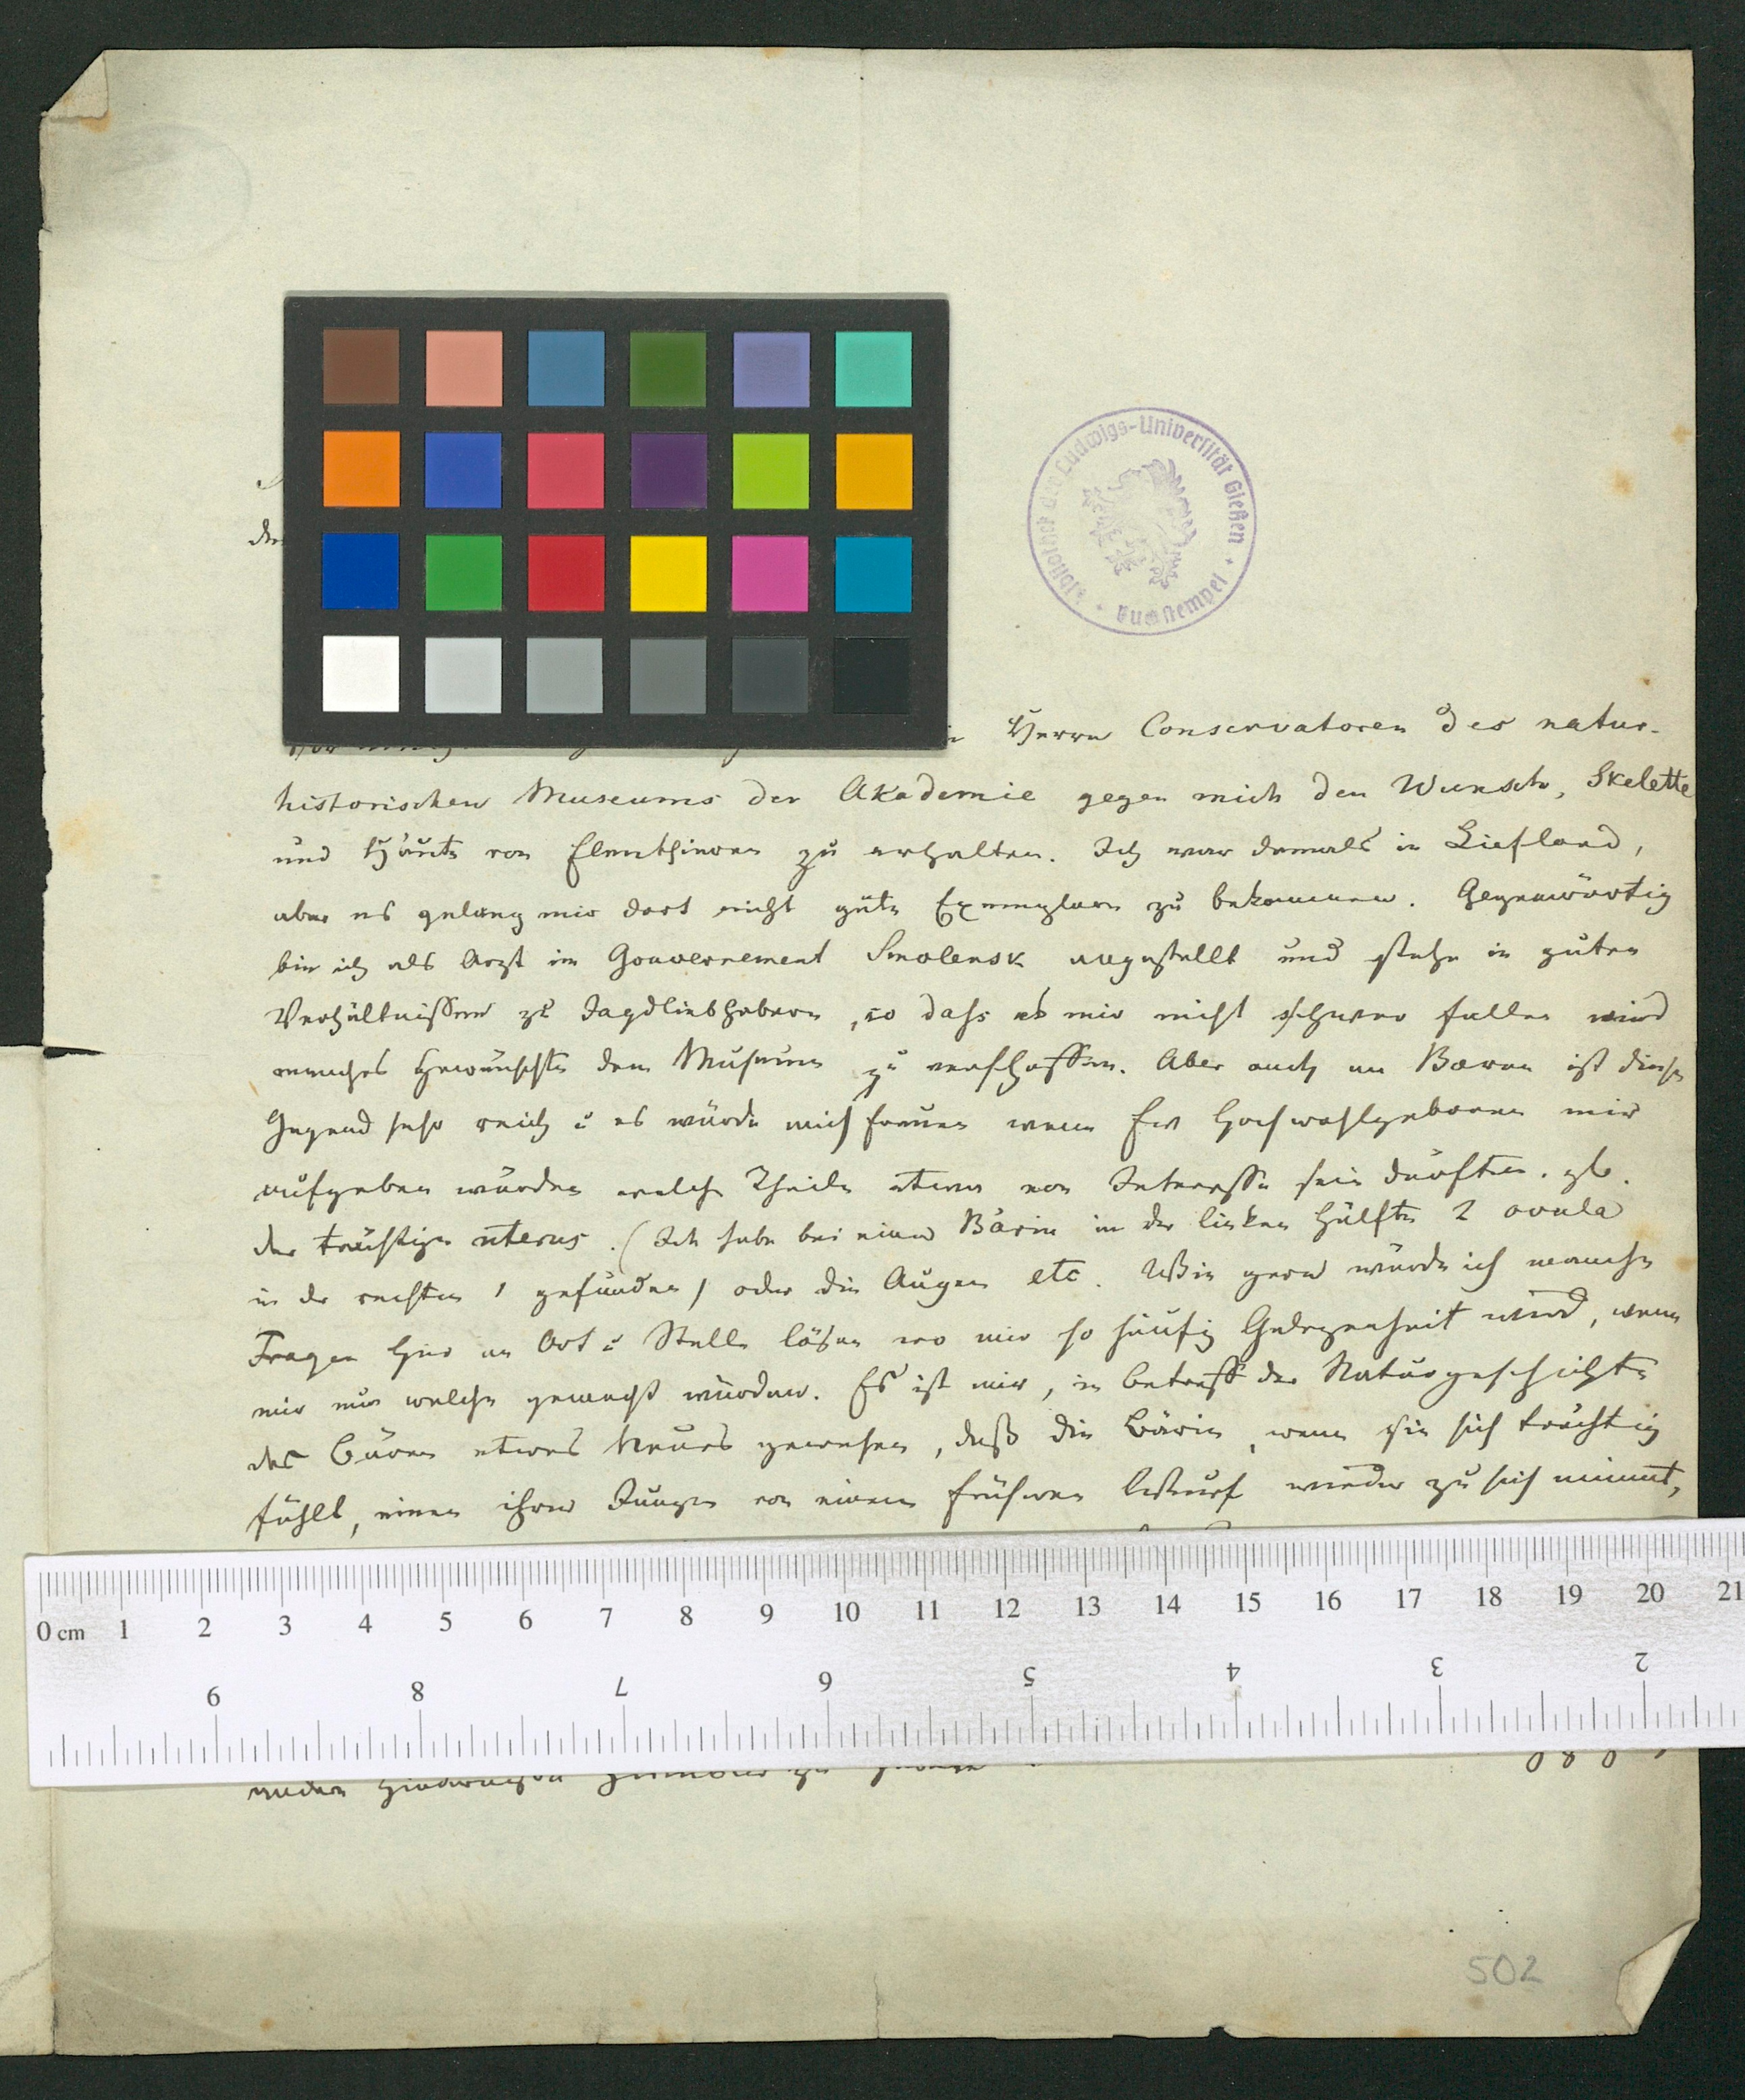 Bibliothek der Ludwigs-Universität Gießen
Herrn Conservatoren des natur-
historischen Museums der Akademie gegen mich den Wunsch, Skelette
und Häute von Elenthieren zu erhalten. Ich war damals in Liefland,
aber es gelang mir dort nicht gute Exemplare zu bekommen. Gegenwärtig
bin ich als Arzt im Gouvernement Smolensk angestellt und stehe in guten
Verhältnissen zu Jagdliebhabern, so dass es mir nicht schwer fallen wird
manches Gewünschte dem Museum zu verschaffen. Aber auch an Bären ist diese
Gegend sehr reich u es würde mich freuen wenn Ew Hochwohlgeboren mir
aufgeben würden welche Theile etwa von Interesse sein dürften. zb.
der trächtige uterus. (Ich habe bei einer Bärin in der linken Hälfte 2 ovula
in der rechten 1 gefunden) oder die Augen etc. Wie gern würde ich manche
Fragen hier an Ort u Stelle lösen wo mir so häufig Gelegenheit wird, wenn
mir nur welche gemacht würden. Es ist mir, in betreff der Naturgeschichte
des Bären etwas Neues gewesen, daß die Bärin, wenn sie sich trächtig
fühlt, einen ihrer Jungen von einem früheren Wurf wieder zu sich nimmt,
0 cm 1 2 3 4 5 6 7 8 9 10 11 12 13 14 15 16 17 18 19 20 21
9 8 7 6 5 4 3 2
502